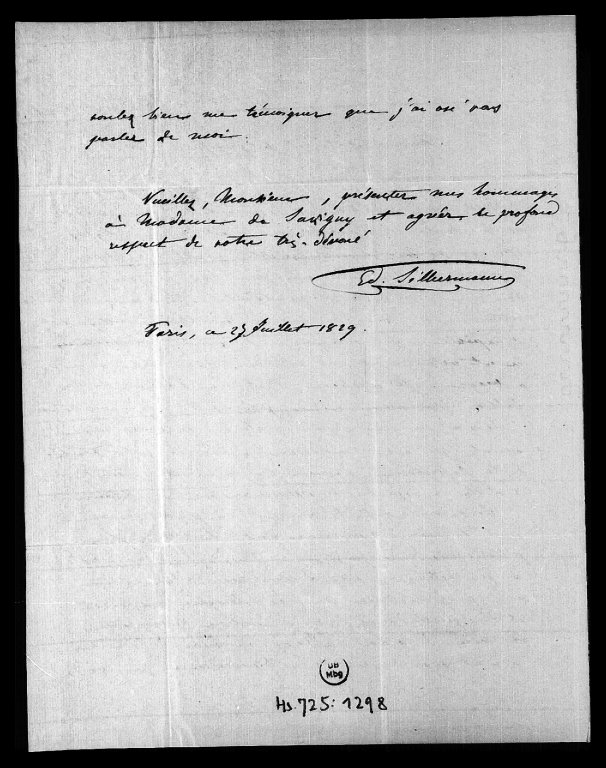 voulez bien me témoigner que j'ai osé vous
parler de moi.
Veuillez, Monsieur, présenter mes hommages
à Madame de Savigny et agréer le profond
respect de votre très-dévoué
Ed. Silbermann
Paris, ce 27 Juillet 1829.
UB
Mbg
Hs. 725: 1298